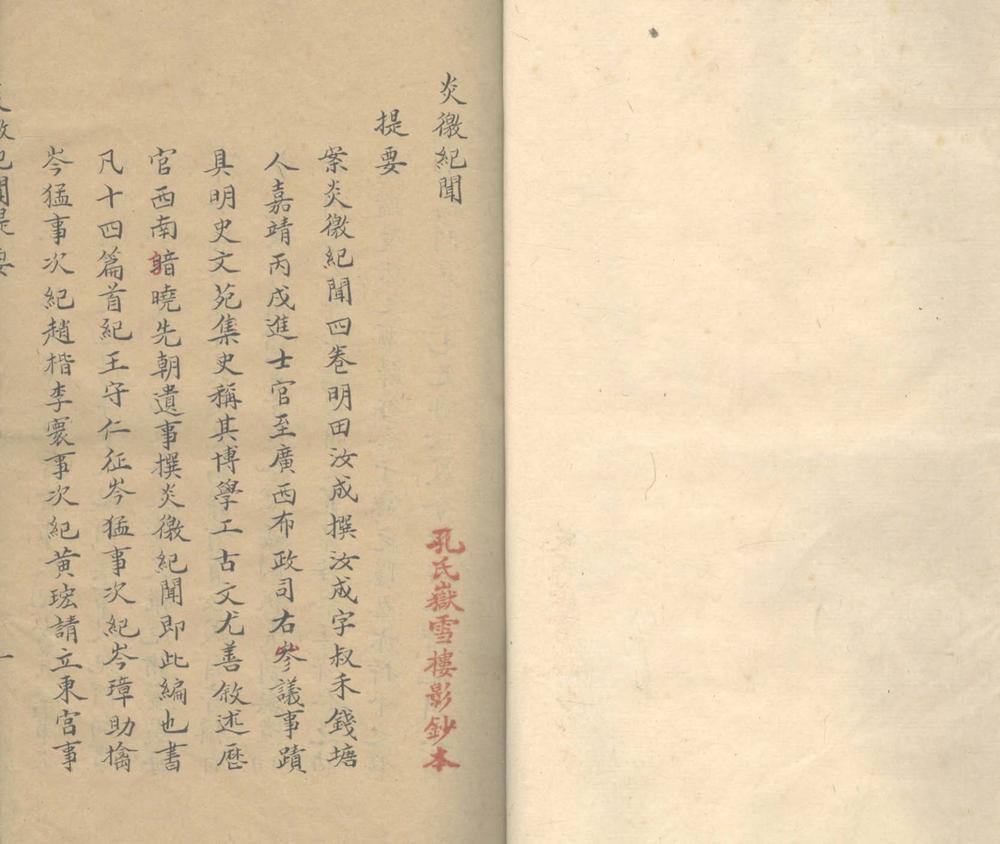 炎徼紀聞
孔氏嶽雪樓影鈔本
提要
案炎徼紀聞四卷明田汝成撰汝成字叔禾錢塘
人嘉靖丙戌進士官至廣西布政司右參議事蹟
具明史文苑集史稱其博學工古文尤善敘述歷
官西南諳曉先朝遺事撰炎徼紀聞即此編也書
凡十四篇首紀王守仁征岑猛事次紀岑璋助擒
岑猛事次紀趙楷李寰事次紀黃𤣱請立東宮事
炎徼紀聞提要
一